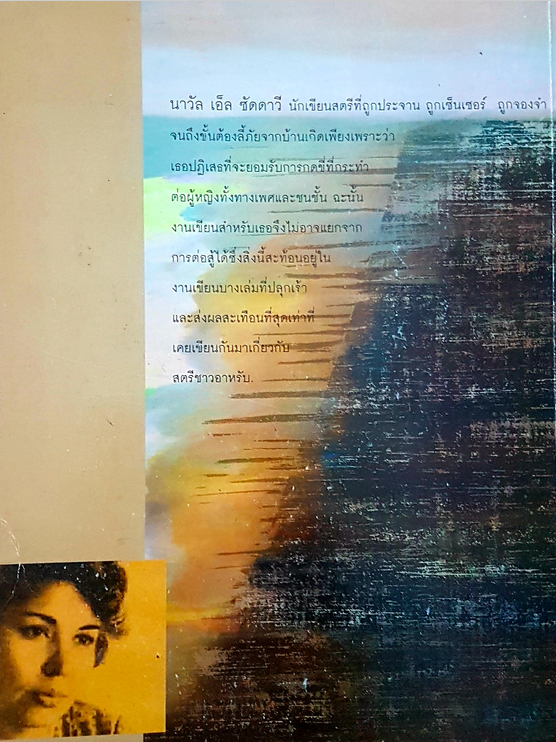 นาวัล เอ็ล ซัดดาวี นักเขียนสตรีที่ถูกประจาน ถูกเซ็นเซอร์ ถูกจองจำ
จนถึงขั้นต้องลี้ภัยจากบ้านเกิดเพียงเพราะว่า
เธอปฏิเสธที่จะยอมรับการกดขี่ที่กระทำ
ต่อผู้หญิงทั้งทางเพศและชนชั้น ฉะนั้น
งานเขียนสำหรับเธอจึงไม่อาจแยกจาก
การต่อสู้ได้ซึ่งสิ่งนี้สะท้อนอยู่ใน
งานเขียนบางเล่มที่ปลุกเร้า
และส่งผลสะเทือนที่สุดเท่าที่
เคยเขียนกันมาเกี่ยวกับ
สตรีชาวอาหรับ.